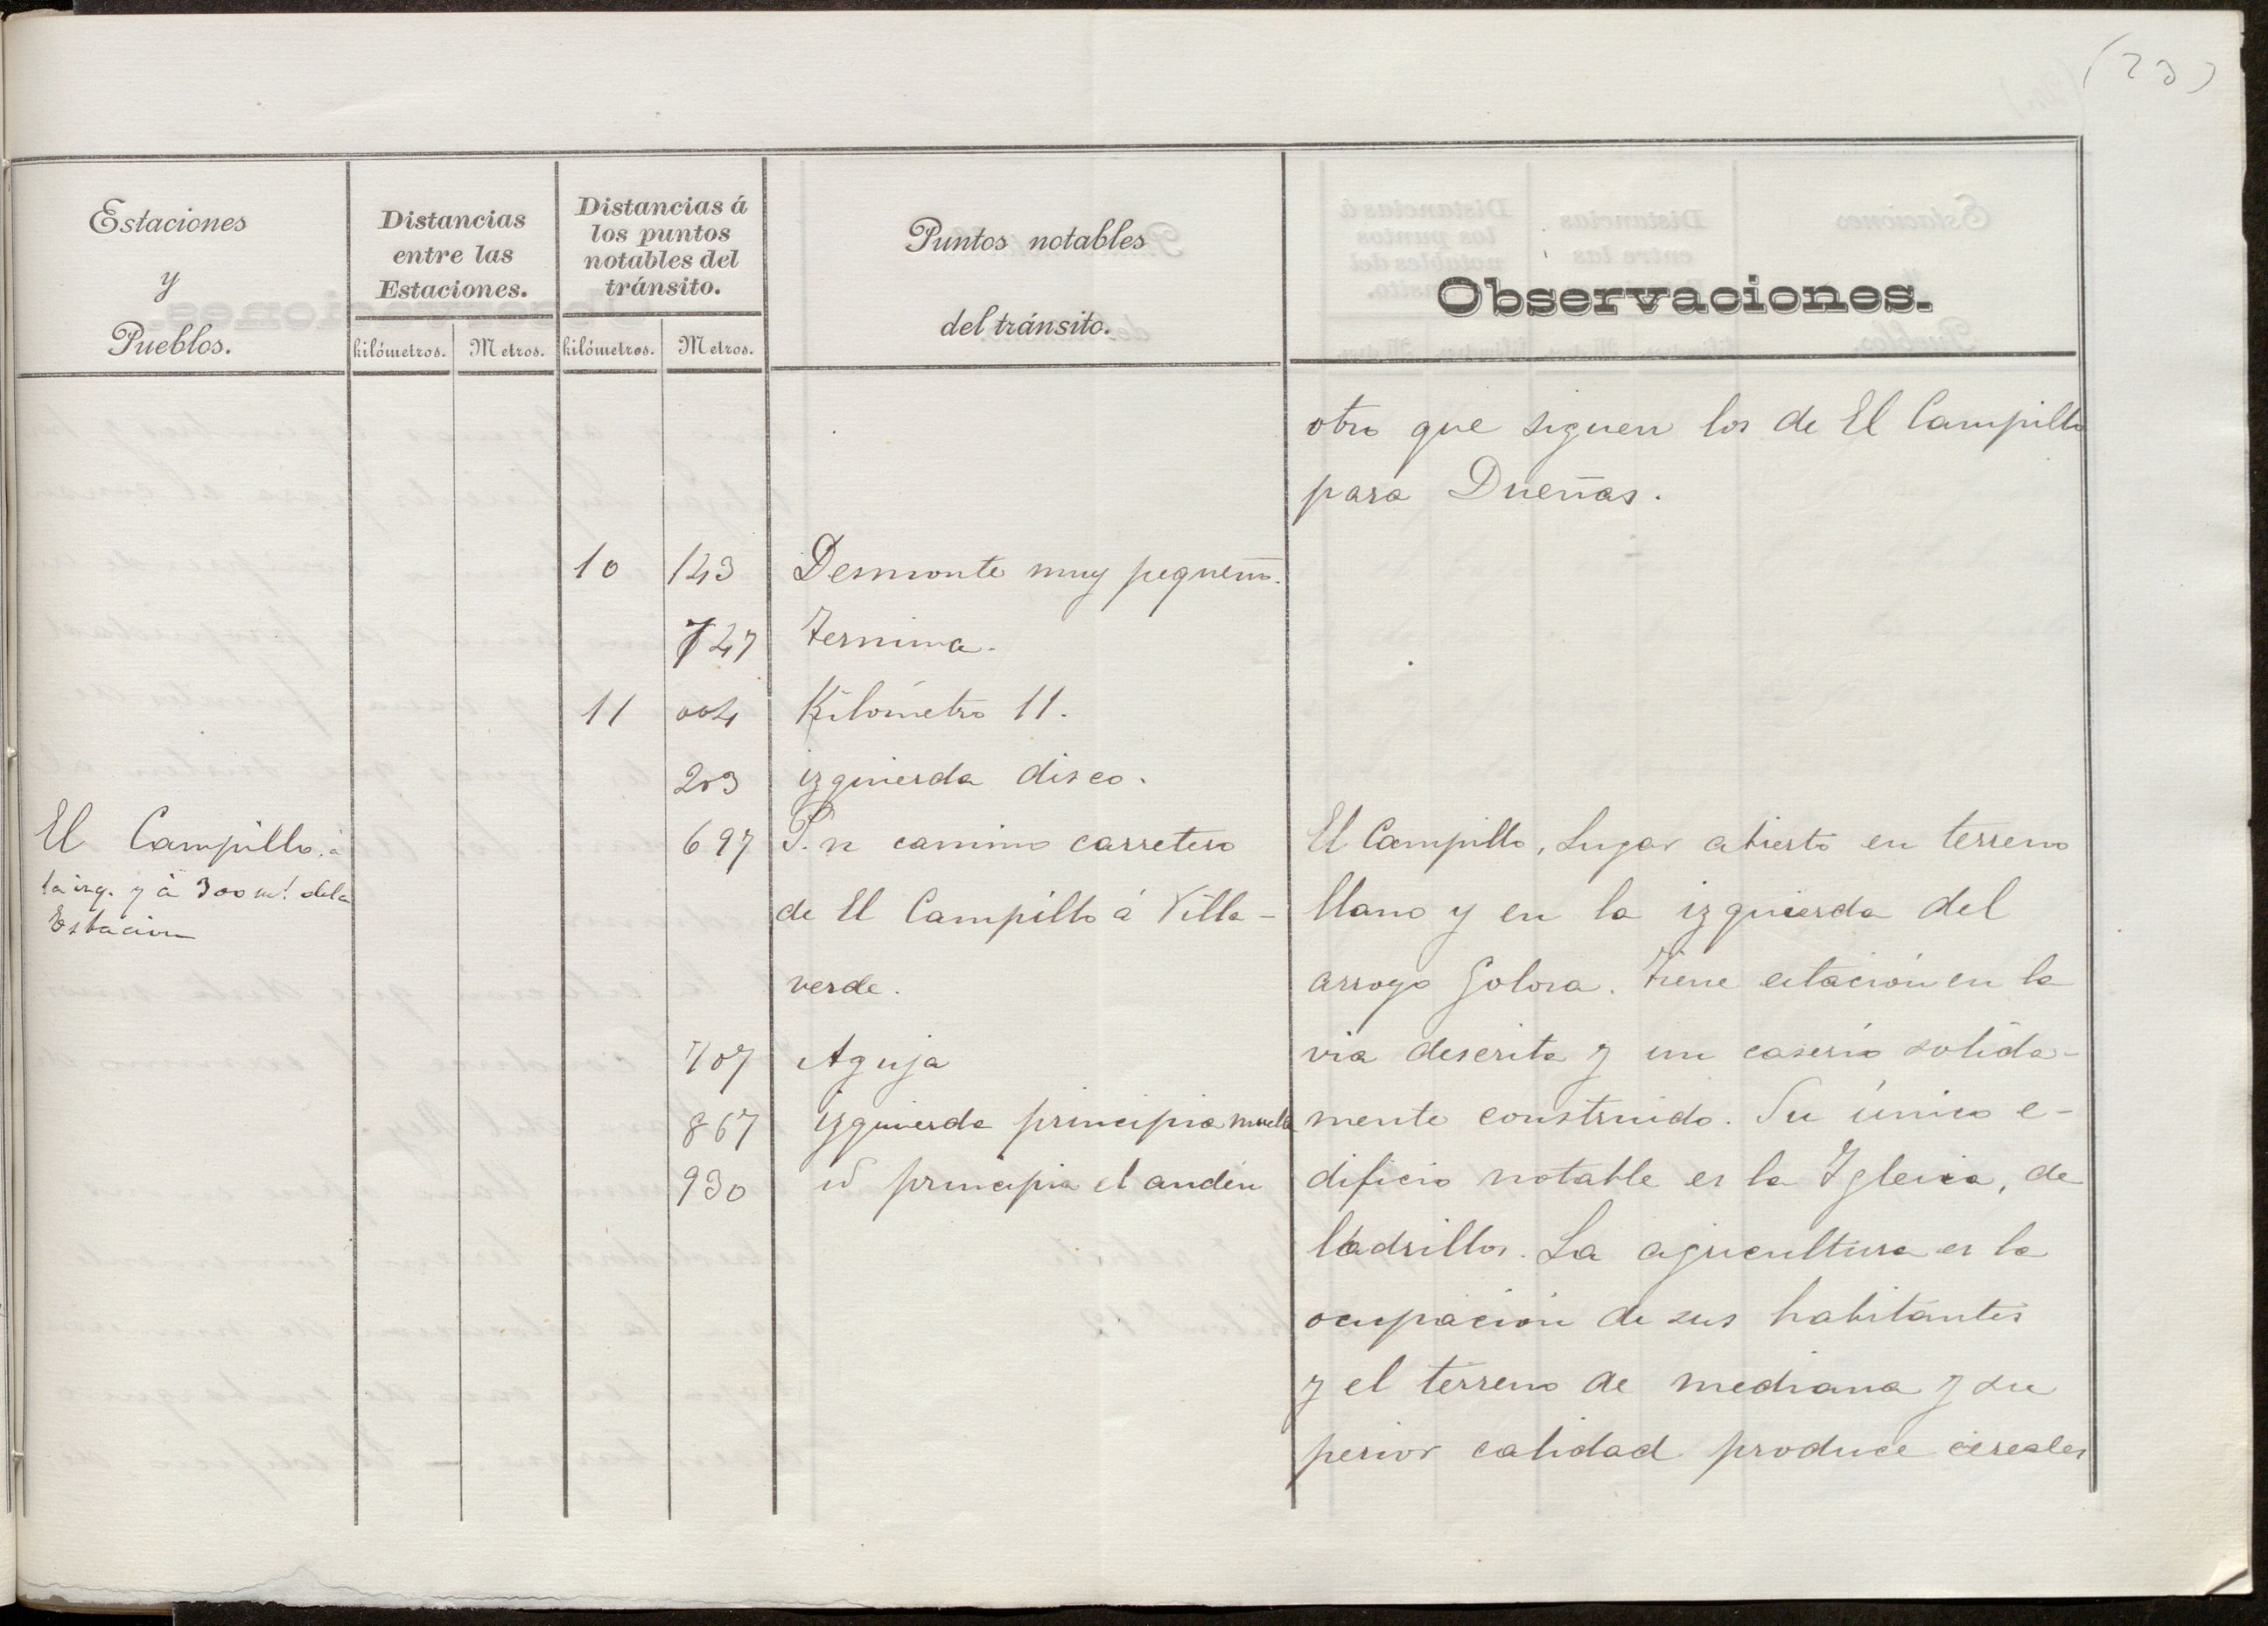 (23)
Estaciones
y
Pueblos.
Distancias
entre las
Estaciones.
kilómetros. Metros.
Distancias á
los puntos
notables del
tránsito.
kilómetros. Metros.
Puntos notables
del tránsito.
Observaciones.
otro que siguen los de El Campillo
para Dueñas.
10 143 Desmonte muy pequeño.
727 Termina.
11 004 Kilómetro 11.
203 izquierda disco.
El Campillo. á
la izq. y á 300 m.! dela
Estacion
697 P. n camino carretero
de El Campillo á Villa-
verde.
707 Aguja
867 izquierda principia muelle
930 id principia el andén
El Campillo, Lugar abierto en terreno
llano y en la izquierda del
arroyo Golosa. Tiene estación en la
via descrita y un caserío solida-
mente construido. Su único e-
dificio notable es la Iglesia, de
ladrillos. La agricultura es la
ocupación de sus habitantes
y el terreno de mediana y su
perior calidad produce cereales